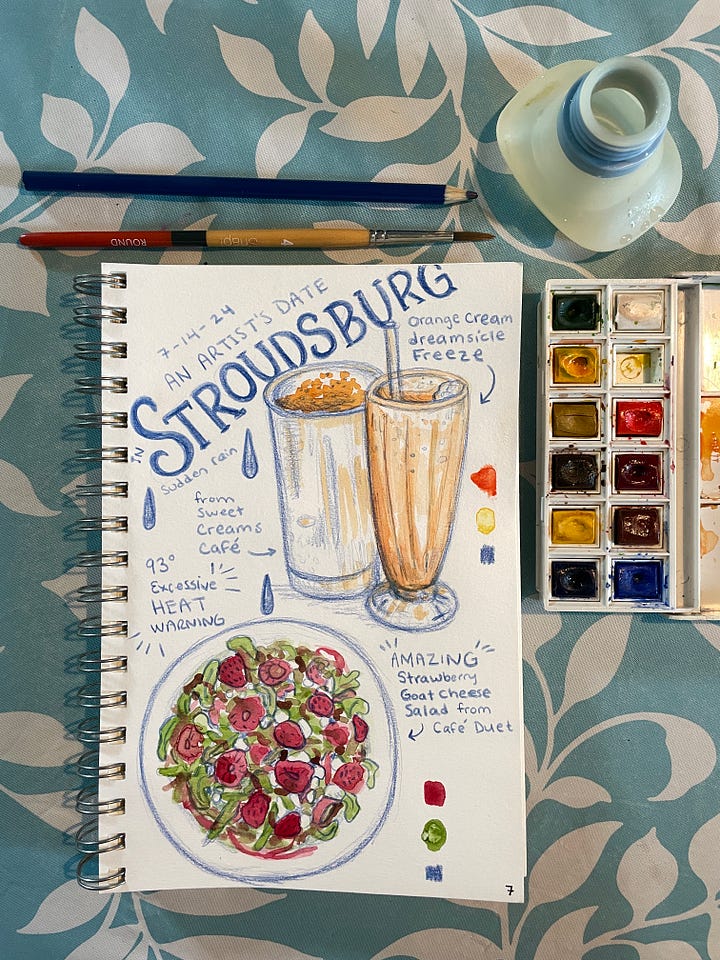 ROUND
Snap! 4
7-14-24
AN ARTIST'S DATE
IN STROUDSBURG
Orange Cream
dreamsicle
Freeze
Sudden rain
from
Sweet
Creams
Café
93°
Excessive
HEAT
WARNING
AMAZING
Strawberry
Goat Cheese
Salad from
Café Duet
7